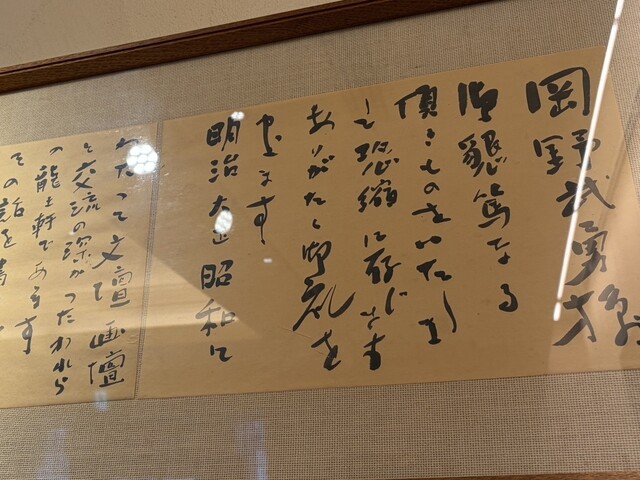 岡野武勇様
御懇篤なる
頂きものをいたしま
して恐縮に存じます
ありがたく御礼を
申します
明治大正昭和に
わたって文壇画壇
と交流の深かったわれら
の龍土軒であります
その話を書